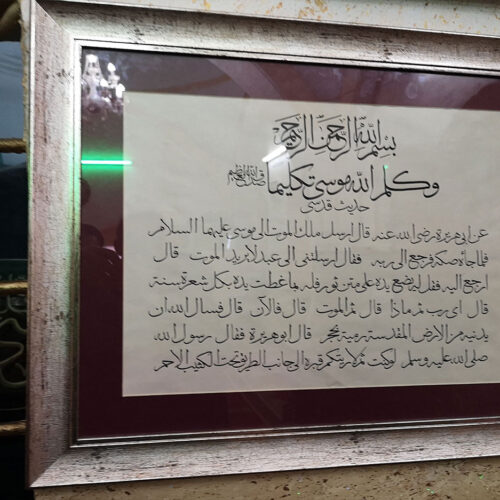 بسم الله الرحمن الرحيم
وكلم الله موسى تكليما صدق الله العظيم
حديث قدسى
عن ابى هريرة رضى الله عنه قال ارسل ملك الموت الى موسى عليهما السلام
فلما جاءه صكه فرجع الى ربه فقال ارسلتنى الى عبد لا يريد الموت قال
ارجع اليه فقل له يضع يده على متن ثور فله بما غطت يده بكل شعرة سنة
قال اى رب ثم ماذا قال ثم الموت قال فالآن قال فسال الله ان
يدنيه من الارض المقدسة رمية بحجر قال ابو هريرة فقال رسول الله
صلى الله عليه وسلم لو كنت ثم لاريتكم قبره الى جانب الطريق تحت الكثيب الاحمر